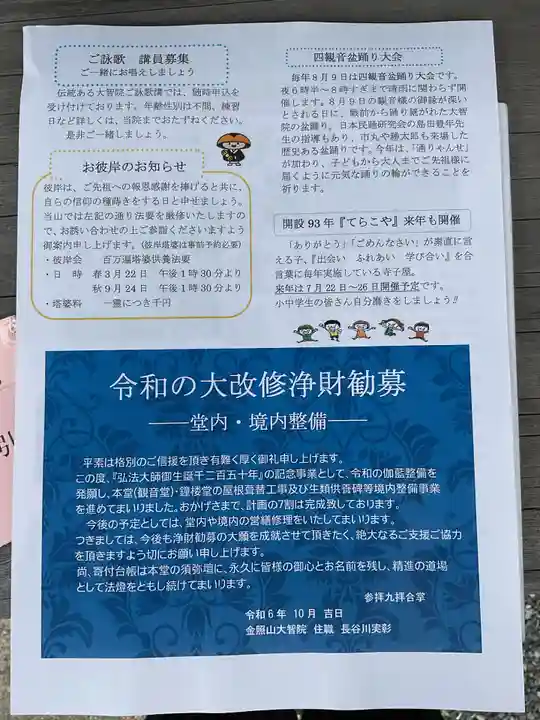 ご詠歌 講員募集
ご一緒にお唱えしましょう
伝統ある大智院ご詠歌講では、随時申込を
受け付けております。年齢性別は不問、練習
日など詳しくは、当院までおたずねください。
是非ご一緒しましょう。
お彼岸のお知らせ
彼岸は、ご先祖への報恩感謝を捧げると共に、
自らの信仰の種蒔きをする日と申せましょう。
当山では左記の通り法要を厳修いたしますの
で、お誘い合わせの上ご参詣くださいますよう
御案内申し上げます。(彼岸塔婆は事前予約必要)
・彼岸会 百万遍塔婆供養法要
・日 時 春3月22日 午後1時30分より
秋9月24日 午後1時30分より
・塔婆料 一霊につき千円
四観音盆踊り大会
毎年8月9日は四観音盆踊り大会です。
夜6時半~8時すぎまで晴雨に関わらず開
催します。8月9日の観音様の御縁が深い
とされる日に、戦前から踊り継がれた大智
院の盆踊り。日本民踊研究会の島田豊年先
生の指導もあり、市丸や勝太郎も来場した
歴史ある盆踊りです。今年は、「通りゃんせ」
が加わり、子どもから大人までご先祖様に
届くように元気な踊りの輪ができることを
祈ります。
開設93年『てらこや』来年も開催
「ありがとう」「ごめんなさい」が素直に言
える子、『出会い ふれあい 学び合い』を合
言葉に毎年実施している寺子屋。
来年は7月22日~26日開催予定です。
小中学生の皆さん自分磨きをしましょう!!
令和の大改修浄財勧募
――堂内・境内整備――
平素は格別のご信援を頂き有難く厚く御礼申し上げます。
この度、『弘法大師御生誕千二百五十年』の記念事業として、令和の伽藍整備を
発願し、本堂(観音堂)・鐘楼堂の屋根葺替工事及び生類供養碑等境内整備事業
を進めてまいりました。おかげさまで、計画の7割は完成致しております。
今後の予定としては、堂内や境内の営繕修理をいたしてまいります。
つきましては、今後も浄財勧募の大願を成就させて頂きたく、絶大なるご支援ご協力
を頂きますよう切にお願い申し上げます。
尚、寄付台帳は本堂の須弥壇に、永久に皆様の御心とお名前を残し、精進の道場
として法燈をともし続けてまいります。
参拝九拝合掌
令和6年 10月 吉日
金照山大智院 住職 長谷川実彰